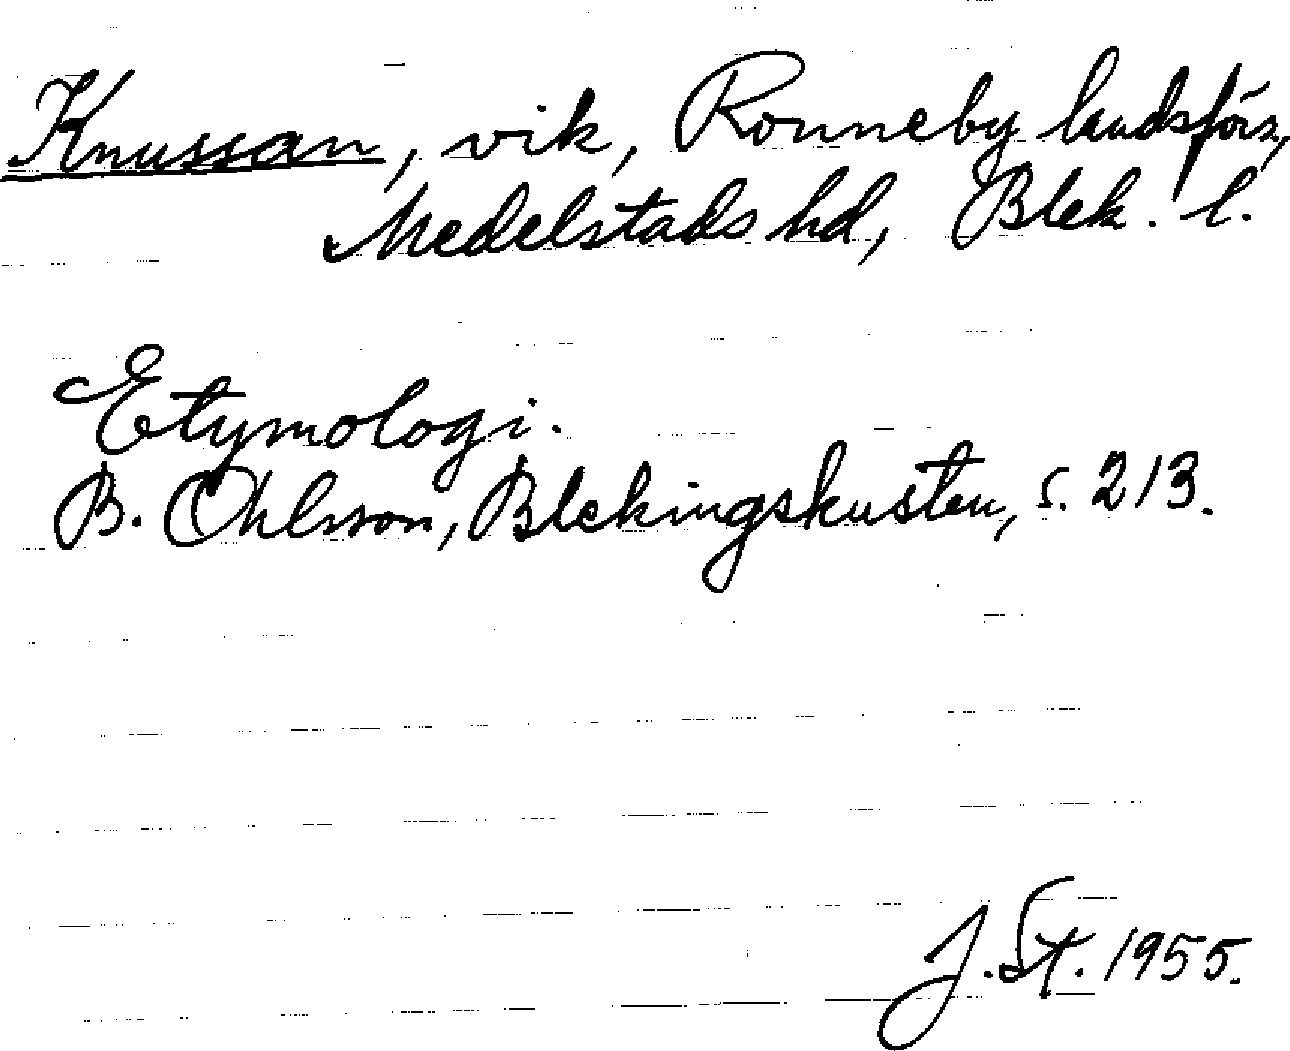 Knussan, vik, Ronneby landsförs,
Medelstads hd, Blek. l.
Etymologi.
B. Ohlsson, Blekingskusten, s. 213.
J. St. 1955.